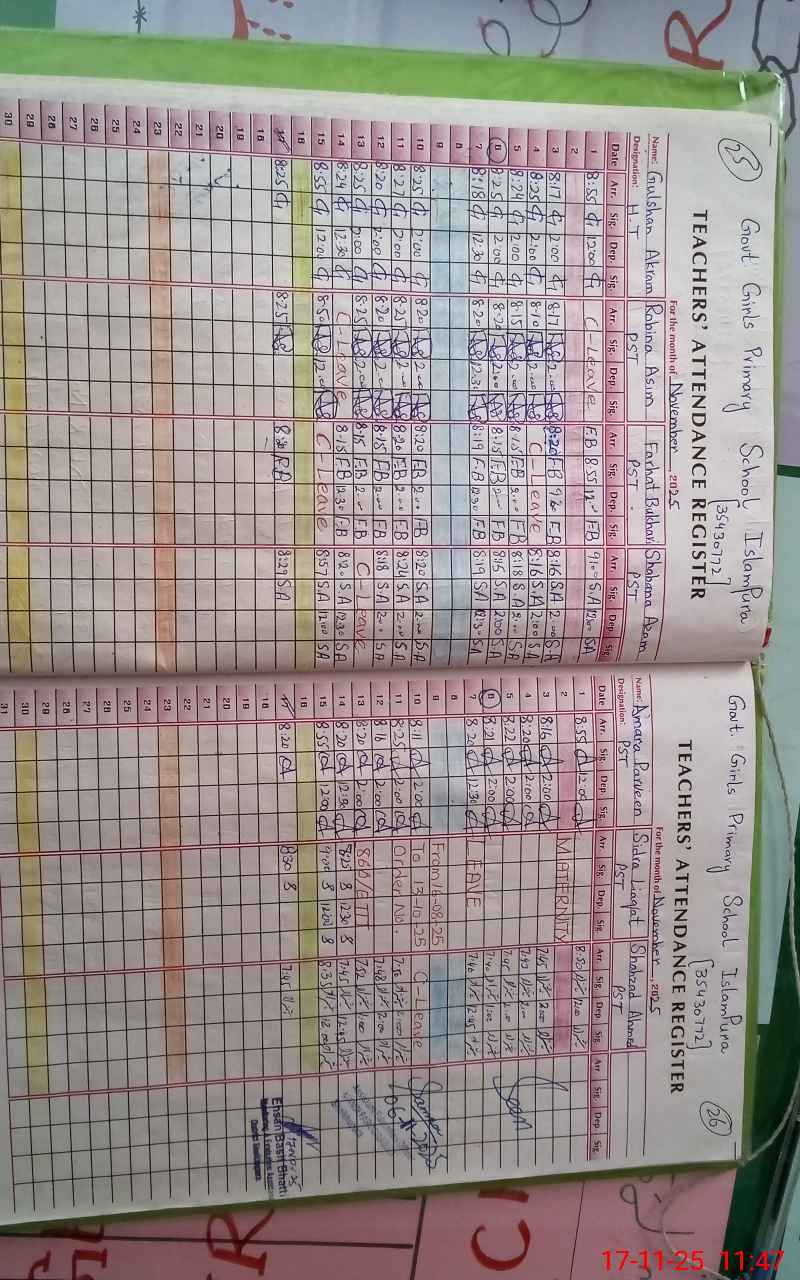 25
Govt Girls Primary School Islampura
[35430772]
TEACHERS' ATTENDANCE REGISTER
For the month of November, 2025
Name: Gulshan Akram Robina Asim Farhat Bukhari Shabana Azam
Designation: H.T PST PST PST
Date Arr. Sig. Dep. Sig. Arr. Sig. Dep. Sig. Arr. Sig. Dep. Sig. Arr. Sig. Dep. Sig.
1 8:55 G 12:00 G C-Leave FB 8:55 12:00 FB 9:00 S.A 12:00 SA
2
3 8:17 G 2:00 G 8:17 2:00 8:20 FB FB 8:16 S.A 2:00 SA
4 8:25 G 2:00 G 8:10 2:00 C-Leave 8:16 S.A 2:00 SA
5 8:24 G 2:00 G 8:15 2:00 8:15 FB 2:00 FB 8:18 S.A 2:00 SA
6 8:25 G 2:00 G 8:20 2:00 8:15 FB 2:00 FB 8:15 S.A 2:00 SA
7 8:18 G 12:30 G 8:20 12:30 8:19 FB 12:30 FB 8:19 S.A 12:30 SA
8
9
10 8:25 G 2:00 G 8:20 2:00 8:20 FB 2:00 FB 8:20 S.A 2:00 SA
11 8:27 G 2:00 G 8:25 2:00 8:20 FB 2:00 FB 8:24 S.A 2:00 SA
12 8:20 G 2:00 G 8:20 2:00 8:15 FB 2:00 FB 8:18 S.A 2:00 SA
13 8:25 G 2:00 G 8:25 2:00 8:15 FB 2:00 FB C-Leave
14 8:24 G 12:30 G C-Leave 8:15 FB 12:30 FB 8:20 S.A 12:30 SA
15 8:55 G 12:00 G 8:50 12:00 C-Leave 8:57 S.A 12:00 SA
16
17 8:25 G 8:25 8:30 FB 8:29 S.A
18
19
20
21
22
23
24
25
26
27
28
29
30
26
Govt. Girls Primary School Islampura
[35430772]
TEACHERS' ATTENDANCE REGISTER
For the month of November, 2025
Name: Amara Parveen Sidra Liaqat Shahzad Ahmed
Designation: PST PST PST
Date Arr. Sig. Dep. Sig. Arr. Sig. Dep. Sig. Arr. Sig. Dep. Sig. Arr. Sig. Dep. Sig.
1 8:55 12:00 8:50 12:00
2 MATERNITY
3 8:16 2:00 7:45 2:00
4 8:20 2:00 2:00
5 8:22 2:00 7:45 2:00
6 8:21 2:00 7:40 2:00
7 8:20 12:30 LEAVE 7:46 12:45
8
9 From 16-08-25
10 8:11 2:00 To 13-10-25 C-Leave
11 8:25 2:00 Order No. 7:50 2:00
12 8:16 2:00 7:48 2:00
13 8:20 2:00 860/ETII 7:52 2:00
14 8:20 12:30 8:25 12:30 7:45 12:45
15 8:55 12:00 9:00 12:00 8:35 12:00
16
17 8:20 8:30 7:45
18
19
20
21
22
23
24
25
26
27
28
29
30
31
Seen
06-11-2025
17-11-25
Ehsan Basit Bhatti
17-11-25 11:47